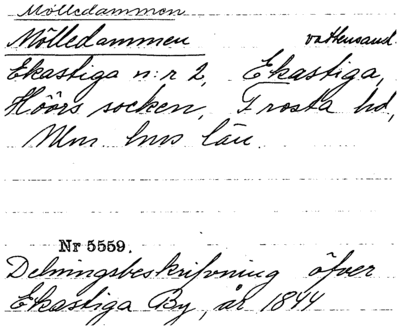 Mölledammen
Mölledammen vattensaml.
Ekastiga n:r 2, Ekastiga,
Höörs socken, Frosta hd,
Mlm hus län.
Nr 5559.
Delningsbeskrifvning öfver
Ekastiga By, år 1844